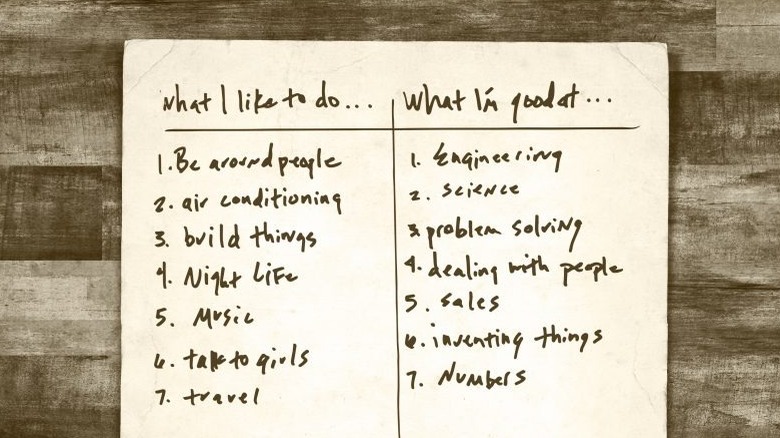 What I like to do...
1. Be around people
2. air conditioning
3. build things
4. Night Life
5. Music
6. talk to girls
7. travel
What I'm good at...
1. Engineering
2. science
3. problem solving
4. dealing with people
5. sales
6. inventing things
7. Numbers